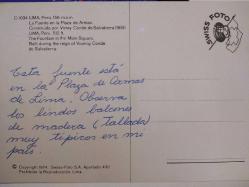 C-1034 LIMA, Perú 156 m.s.n.m.
La Fuente en la Plaza de Armas.
Construida por Virrey Conde de Salvatierra (1650)
LIMA, Perú, 512 ft.
The Fountain in the Main Square,
Built during the reign of Viceroy Conde
de Salvatierra
SWISS FOTO
Esta fuente está
en la Plaza de Armas
de Lima. Observa
los lindos balcones
de madera (tallada)
muy típicos en mi
país.
Copyright © 1974, Swiss-Foto S.A., Apartado
Prohibida la Reproducción, Lima.